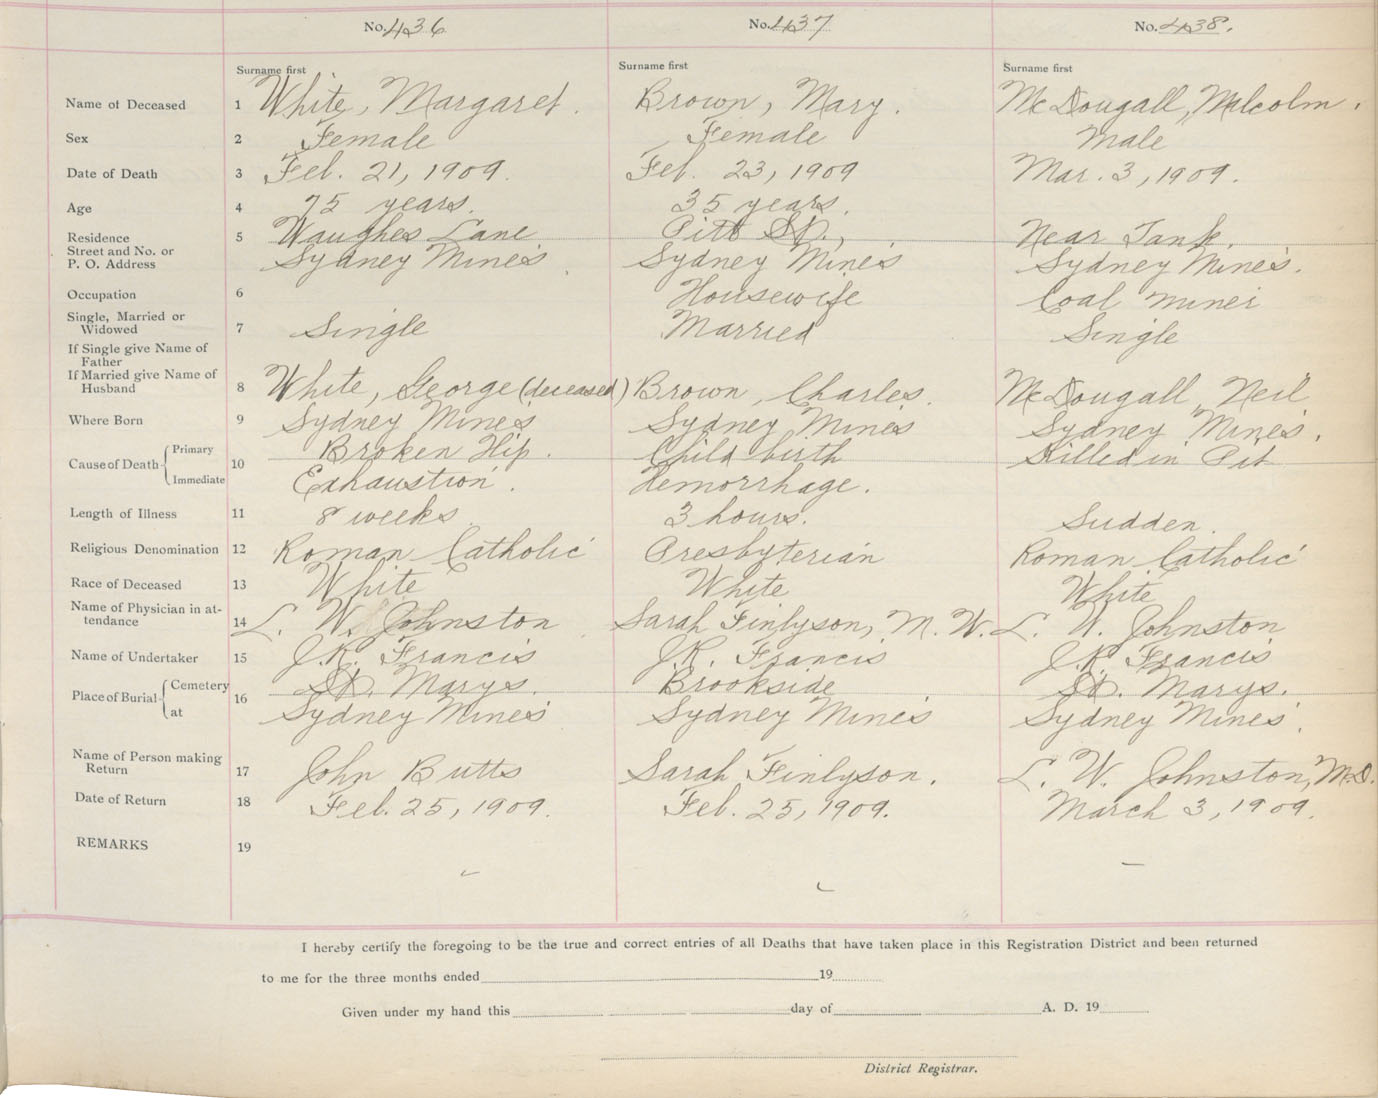 No. 436 No. 437 No. 438.
Surname first Surname first Surname first
Name of Deceased 1 White, Margaret. Brown, Mary. McDougall, Malcolm.
Sex 2 Female Female Male
Date of Death 3 Feb. 21, 1909. Feb. 23, 1909 Mar. 3, 1909.
Age 4 75 years. 35 years.
Residence 5 Waughes Lane Pitt St., Near Tank.
Street and No. or
P. O. Address Sydney Mines Sydney Mines Sydney Mines.
Occupation 6 Housewife Coal miner
Single, Married or
Widowed 7 Single Married Single
If Single give Name of
Father
If Married give Name of
Husband 8 White, George (deceased) Brown, Charles. McDougall, Neil
Where Born 9 Sydney Mines Sydney Mines Sydney Mines.
Cause of Death Primary 10 Broken Hip. Child birth Killed in Pit
Immediate Exhaustion. Hemorrhage.
Length of Illness 11 8 weeks. 3 hours. Sudden.
Religious Denomination 12 Roman Catholic Presbyterian Roman Catholic
Race of Deceased 13 White White White
Name of Physician in at-
tendance 14 L. W. Johnston Sarah Finlyson, M. W. L. W. Johnston
Name of Undertaker 15 J.R. Francis J.R. Francis J.R. Francis
Place of Burial Cemetery 16 St. Marys. Brookside St. Marys.
at Sydney Mines Sydney Mines Sydney Mines.
Name of Person making
Return 17 John Butts Sarah Finlyson. L. W. Johnston, M.D.
Date of Return 18 Feb. 25, 1909. Feb. 25, 1909. March 3, 1909.
REMARKS 19
I hereby certify the foregoing to be the true and correct entries of all Deaths that have taken place in this Registration District and been returned
to me for the three months ended 19
Given under my hand this day of A. D. 19
District Registrar.